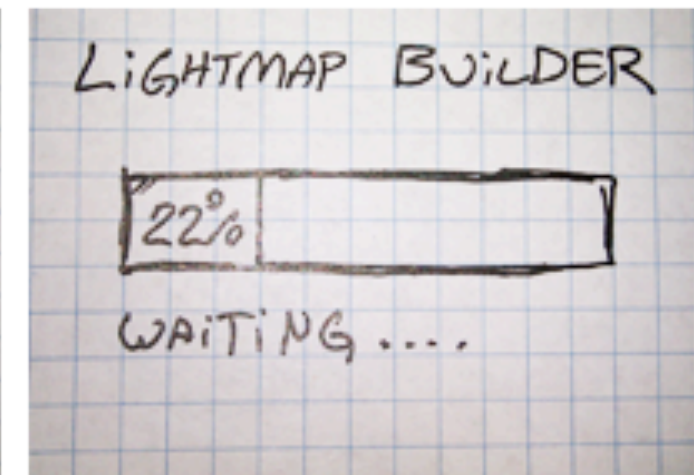 LiGHTMAP BUiLDER
22%
WAiTiNG ....